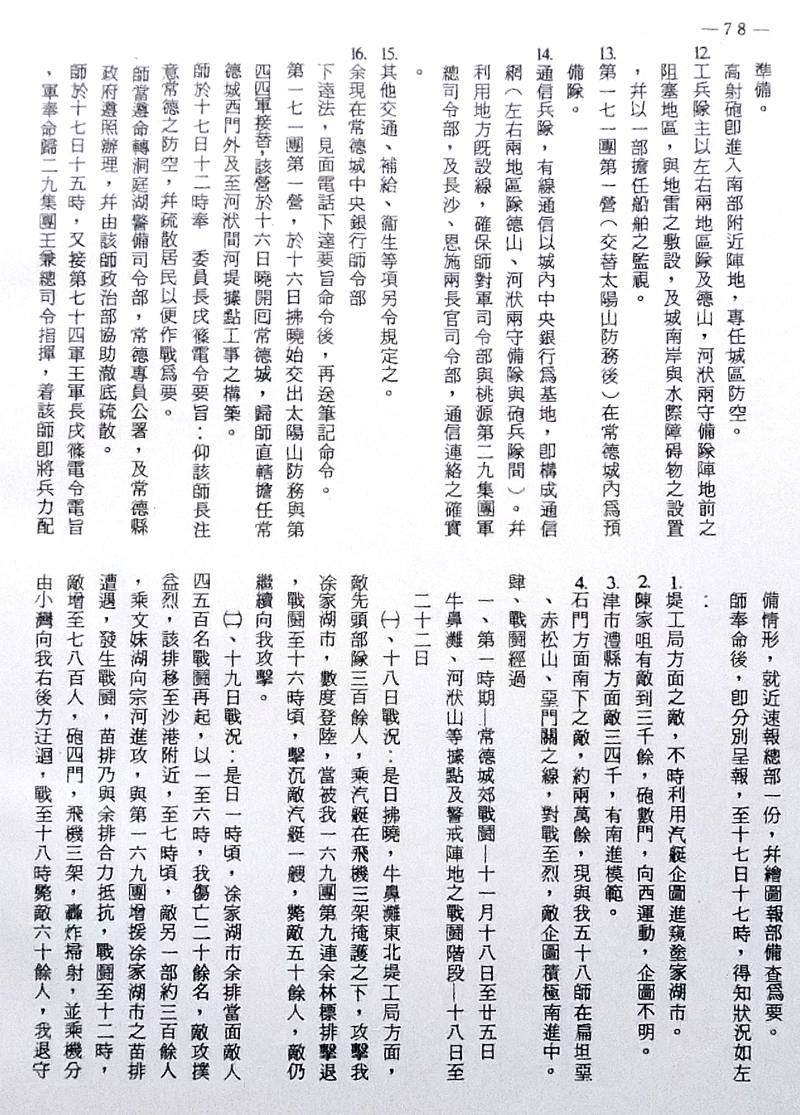 —78—
準備。
高射砲卽進入南部附近陣地，專任城區防空。
12.工兵隊主以左右兩地區隊及德山，河洑兩守備隊陣地前之
阻塞地區，與地雷之敷設，及城南岸與水際障碍物之設置
，幷以一部擔任船舶之監視。
13.第一七一團第一營（交替太陽山防務後）在常德城內爲預
備隊。
14.通信兵隊，有線通信以城內中央銀行爲基地，卽構成通信
網（左右兩地區隊德山、河洑兩守備隊與砲兵隊間）。幷
利用地方旣設線，確保師對軍司令部與桃源第二九集團軍
總司令部，及長沙、恩施兩長官司令部，通信連絡之確實
。
15.其他交通、補給、衞生等項另令規定之。
16.余現在常德城中央銀行師令部
下達法，見面電話下達要旨命令後，再送筆記命令。
第一七一團第一營，於十六日拂曉始交出太陽山防務與第
四四軍接替，該營於十六日曉開囘常德城，歸師直轄擔任常
德城西門外及至河洑間河堤據點工事之構築。
師於十七日十二時奉　委員長戌篠電令要旨：仰該師長注
意常德之防空，幷疏散居民以便作戰爲要。
師當遵命轉洞庭湖警備司令部，常德專員公署，及常德縣
政府遵照辦理，幷由該師政治部協助澈底疏散。
師於十七日十五時，又接第七十四軍王軍長戌篠電令電旨
，軍奉命歸二九集團王兼總司令指揮，着該師卽將兵力配
備情形，就近速報總部一份，幷繪圖報部備查爲要。
師奉命後，卽分別呈報，至十七日十七時，得知狀況如左
：
1.堤工局方面之敵，不時利用汽艇企圖進窺塗家湖市。
2.陳家咀有敵到三千餘，砲數門，向西運動，企圖不明。
3.津市澧縣方面敵三四千，有南進模範。
4.石門方面南下之敵，約兩萬餘，現與我五十八師在扁坦垩
、赤松山、垩門關之線，對戰至烈，敵企圖積極南進中。
肆、戰鬪經過
一、第一時期—常德城郊戰鬪—十一月十八日至廿五日
牛鼻灘、河洑山等據點及警戒陣地之戰鬪階段—十八日至
二十二日
㈠、十八日戰況：是日拂曉，牛鼻灘東北堤工局方面，
敵先頭部隊三百餘人，乘汽艇在飛機三架掩護之下，攻擊我
涂家湖市，數度登陸，當被我一六九團第九連余林標排擊退
，戰鬪至十六時頃，擊沉敵汽艇一艘，斃敵五十餘人，敵仍
繼續向我攻擊。
㈡、十九日戰況：是日一時頃，涂家湖市余排當面敵人
四五百名戰鬪再起，以一至六時，我傷亡二十餘名，敵攻撲
益烈，該排移至沙港附近，至七時頃，敵另一部約三百餘人
，乘文妹湖向宗河進攻，與第一六九團增援涂家湖市之苗排
遭遇，發生戰鬪，苗排乃與余排合力抵抗，戰鬪至十二時，
敵增至七八百人，砲四門，飛機三架，轟炸掃射，並乘機分
由小灣向我右後方迂迴，戰至十八時斃敵六十餘人，我退守